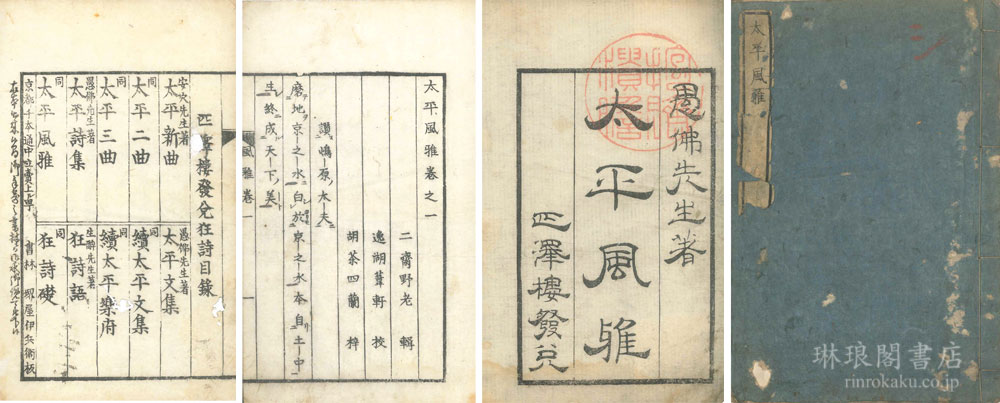 太平風雅
琳琅閣書店
rinrokaku.co.jp
愚佛先生著
太平風雅
澤樓發兌
太平風雅卷之一
二齋野老 輯
逸湖葺軒 校
胡茶四蘭 梓
讃嶋原太夫
磨地京之水白於京之水本自土中
生終成天下美
風雅卷一
一
樓發兌狂詩目録
安穴先生著 太平新曲
愚佛先生著 太平文集
同 太平二曲
同 續太平文集
同 太平三曲
同 續太平樂府
愚佛先生著 太平詩集
生醉先生著 狂詩語
同 太平風雅
同 狂詩礎
京都千本通中立賣上 書林 堺屋伊兵衛板